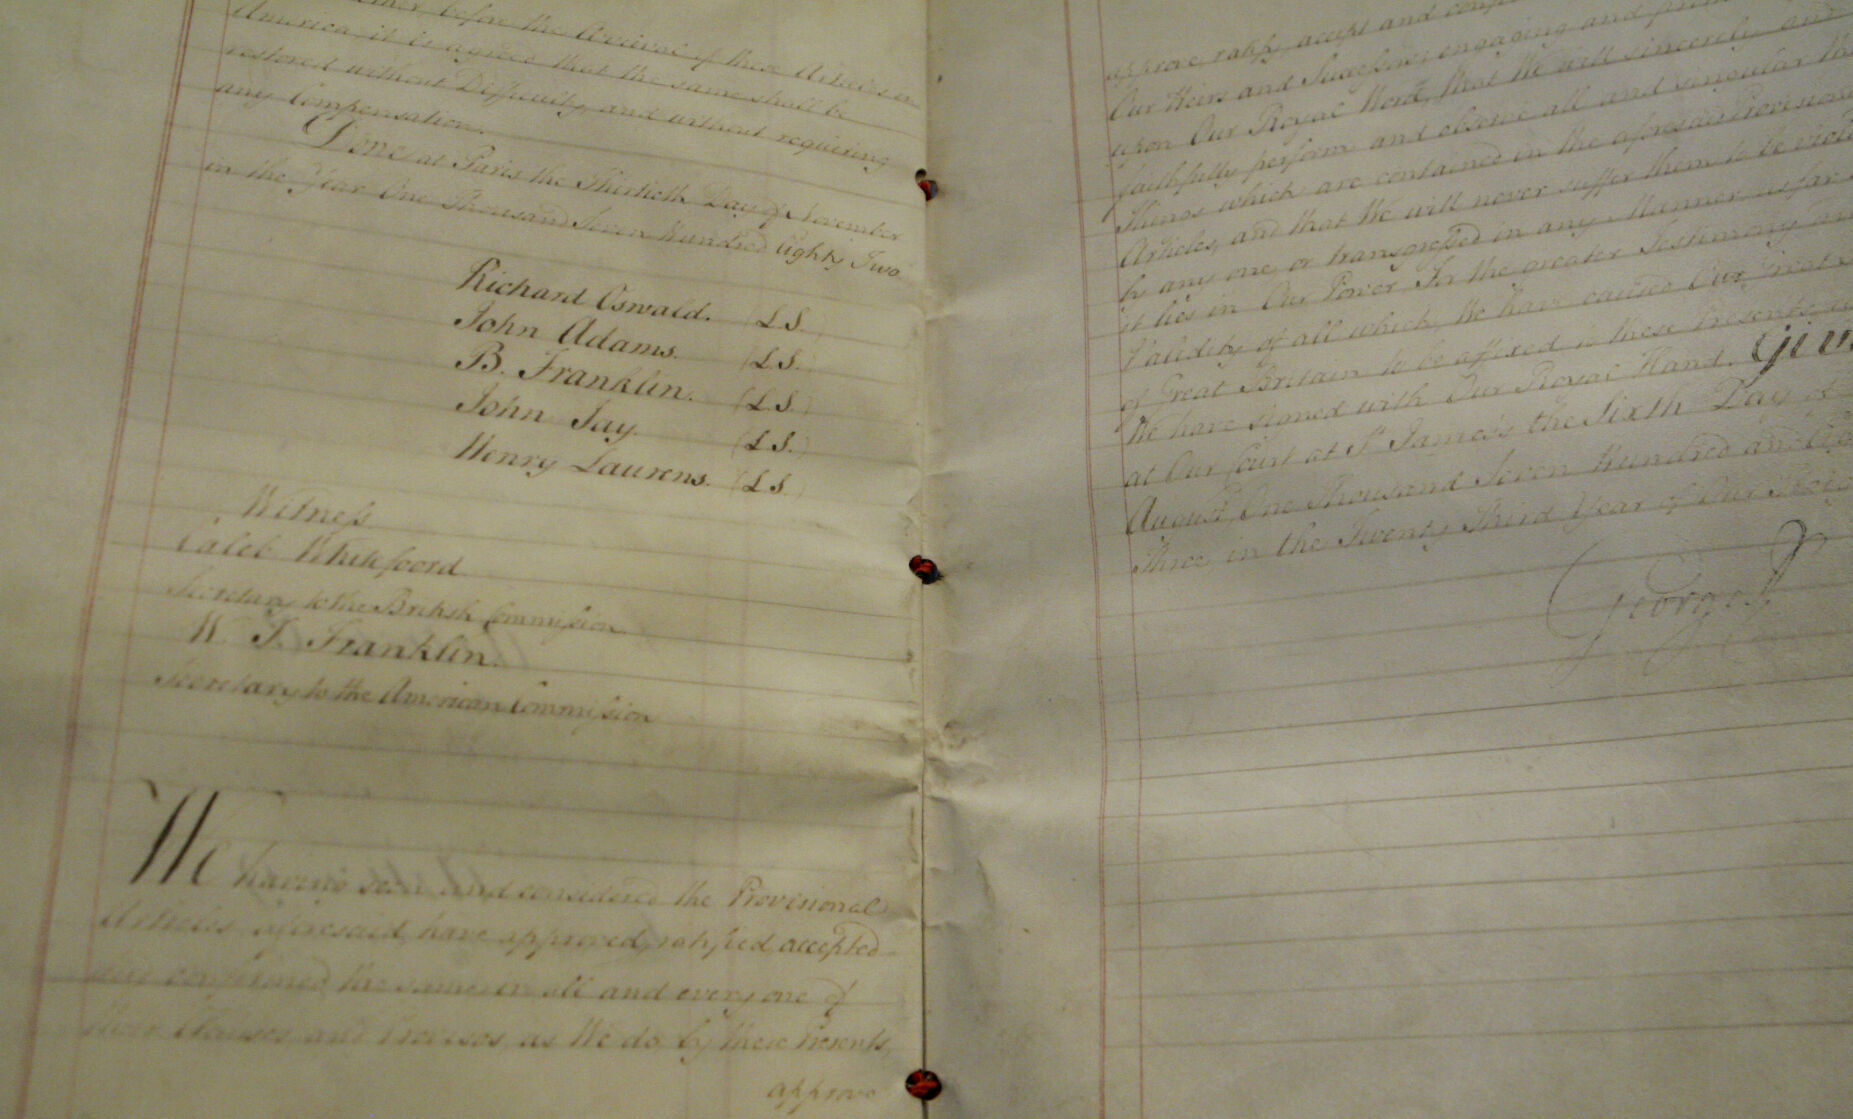 before the Arrival of these Articles in
America, it is agreed that the same shall be
restored without Difficulty, and without requiring
any Compensation.
Done at Paris the Thirtieth Day of November
in the Year One Thousand Seven Hundred Eighty Two
Richard Oswald. (L.S.)
John Adams. (L.S.)
B. Franklin. (L.S.)
John Jay. (L.S.)
Henry Laurens. (L.S.)
Witness
Caleb Whitefoord
Secretary to the British Commission.
W. T. Franklin.
Secretary to the American Commission
We having seen and considered the Provisional
Articles aforesaid, have approved, ratified, accepted
and confirmed the same in all and every one of
their Clauses and Provisos, as We do by these Presents,
approve
approve, ratify, accept and
Our Heirs and Successors, engaging and
upon Our Royal Word, that We will sincerely and
faithfully perform and observe all and singular the
Things which are contained in the aforesaid Provisional
Articles, and that We will never suffer them to be
by any one, or transgressed in any Manner as far
it lies in Our Power. In the greater Testimony and
Validity of all which, We have caused Our Great
of Great Britain to be affixed to these Presents,
We have signed with Our Royal Hand. Giv
at Our Court at St. James's the Sixth Day of
August, One Thousand Seven Hundred and
Three in the Twenty Third Year of Our
George R